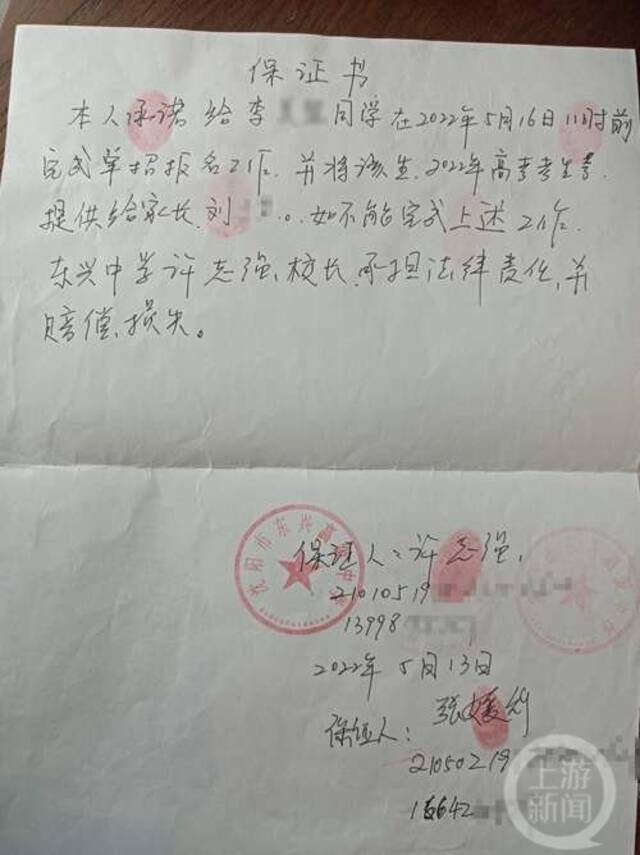 保证书
本人承诺给李 同学在2022年5月16日11时前
完成单招报名工作.并将该生.2022年高考考生号.
提供给家长.刘 。如不能完成上述工作.
东兴中学许志强,校长.承担法律责任,并
赔偿,损失。
沈阳市东兴高级中学
保证人:许志强,
21010519
13998
2022年5月13日
保证人: 张媛
21050219
15642
上游新闻